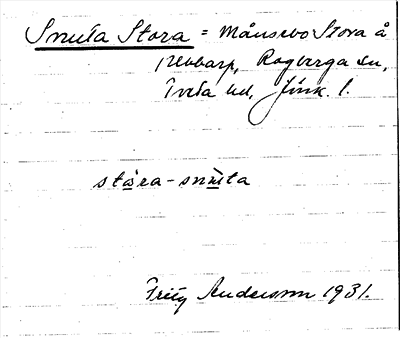 Snuta Stora = Månsebo Stora å
Rebbarp, Rogberga sn,
Tveta hd, Jönk. l.
stára-snùta
Fritz Andersson 1931.